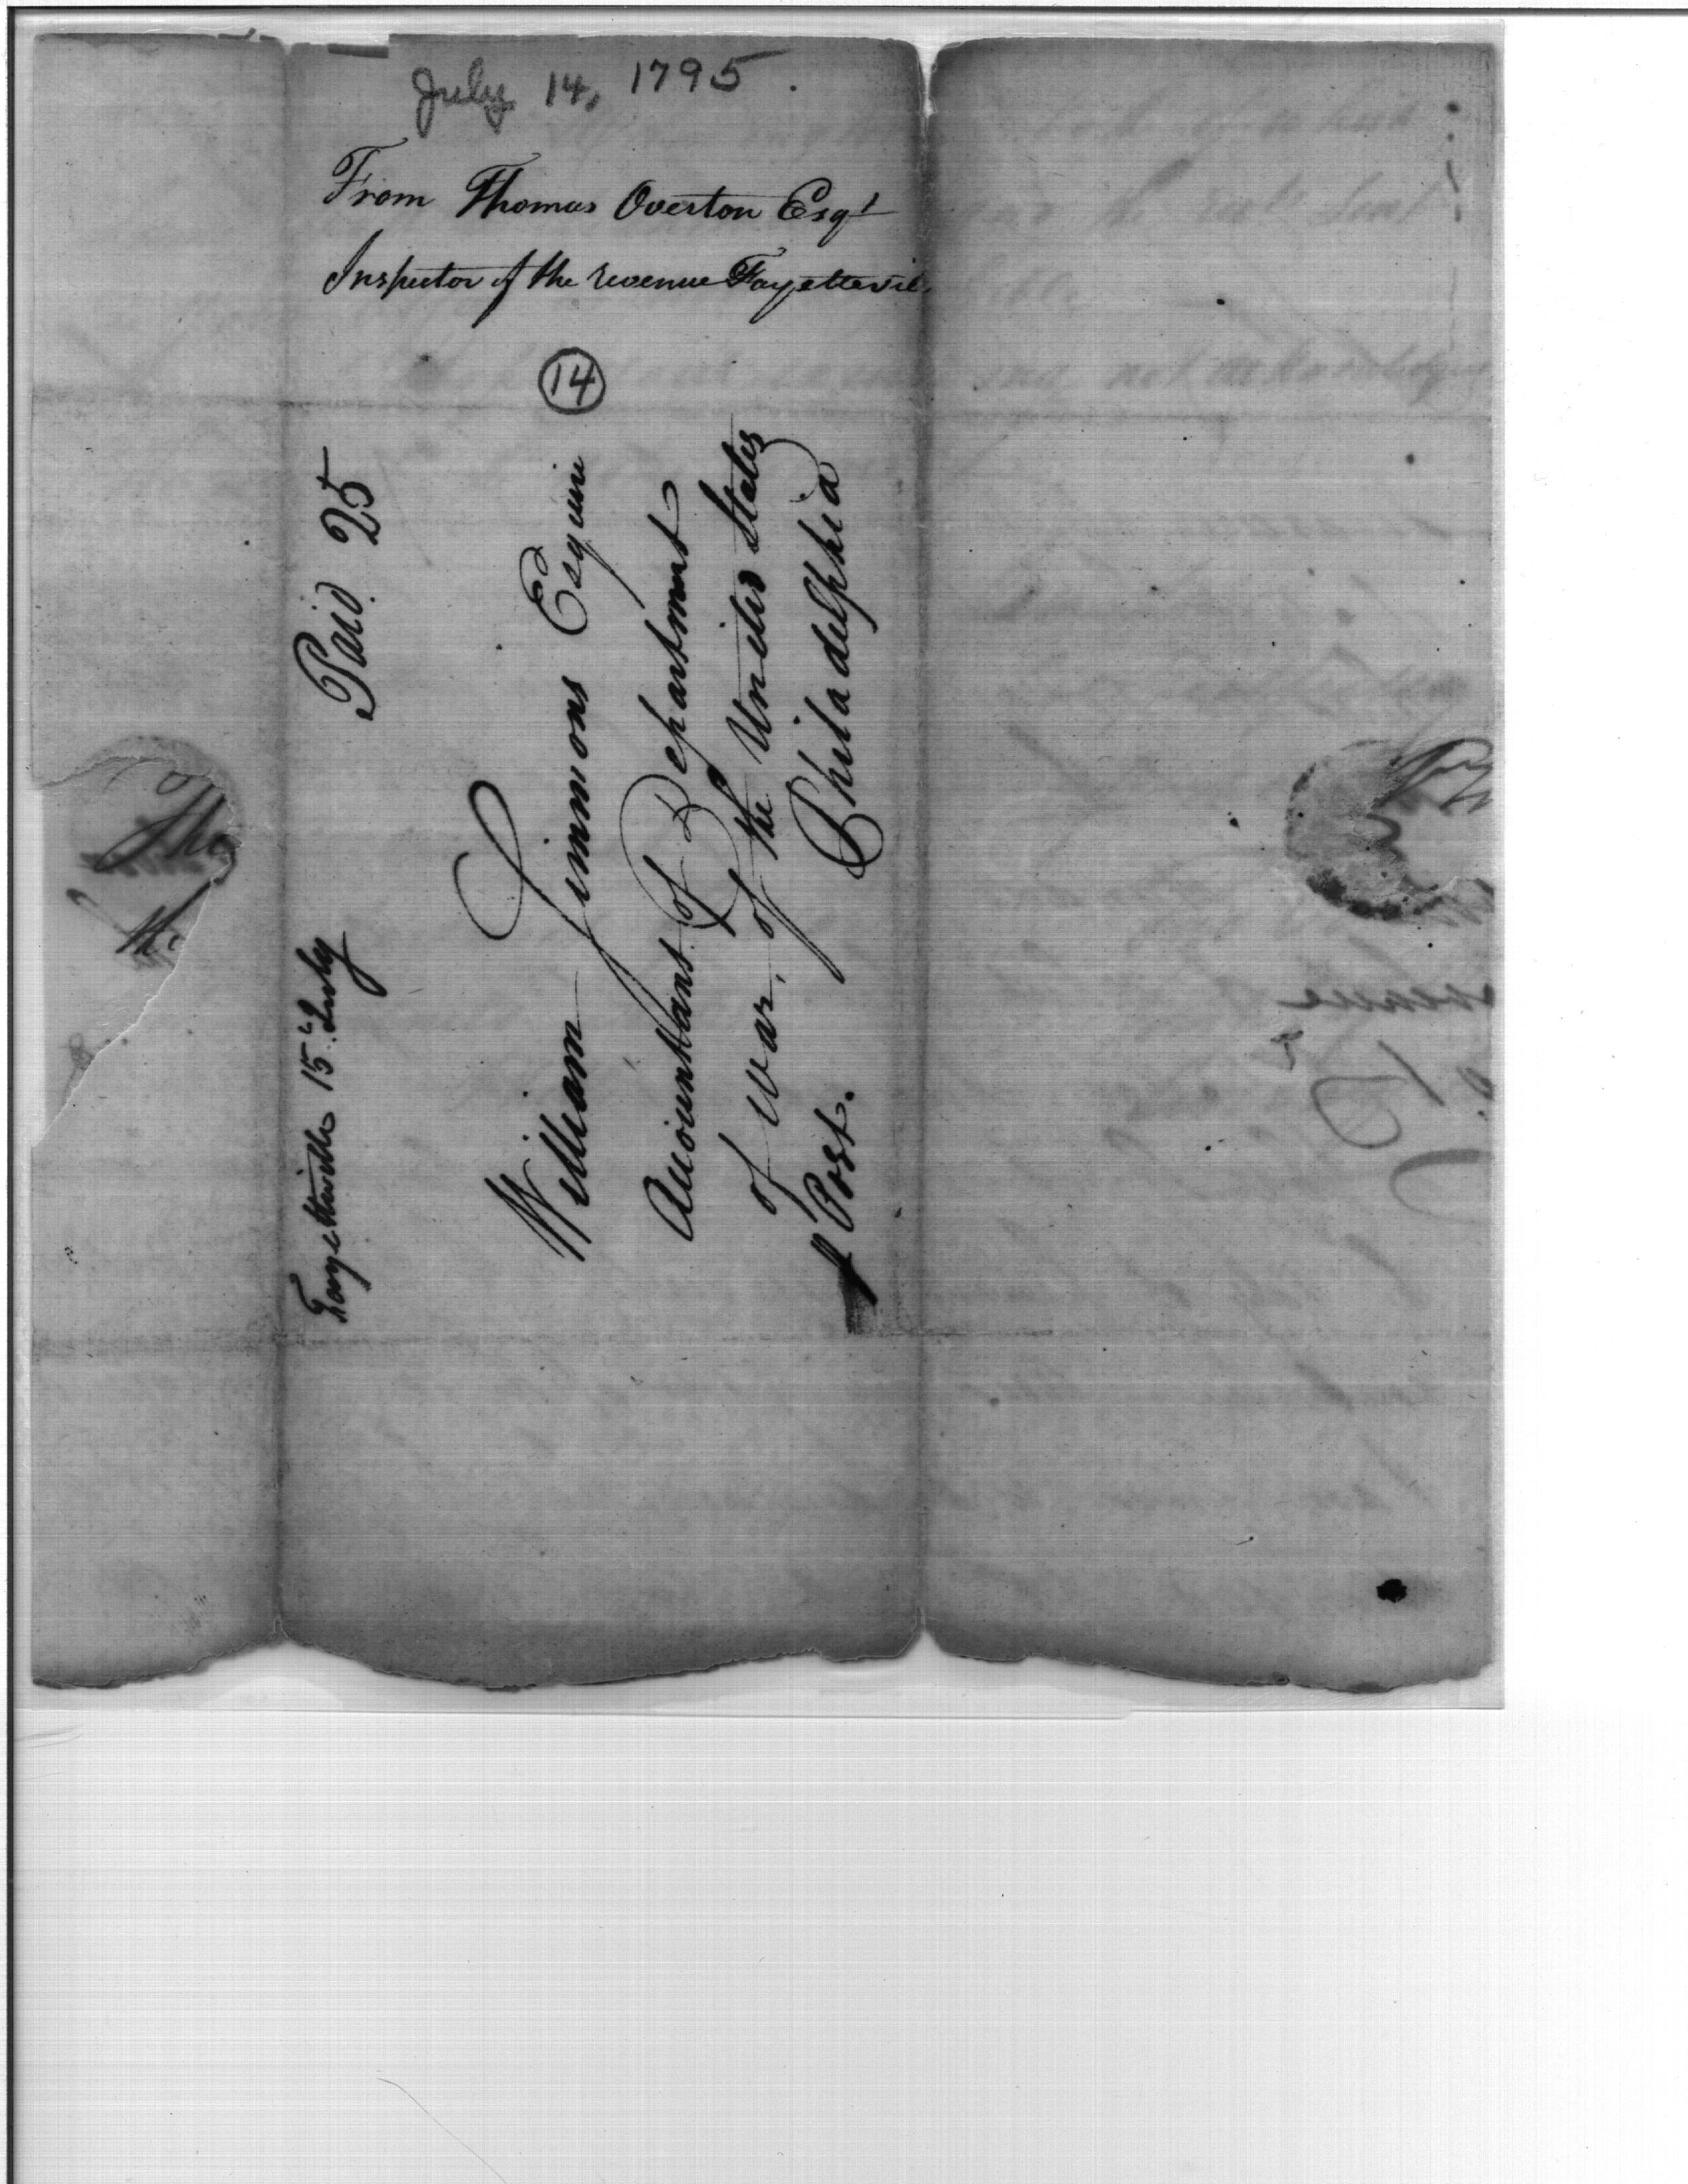 July 14, 1795.
From Thomas Overton Esqr
Inspector of the revenue Fayettevile
14
Paid 25
Fayetteville 15 July
William Simmons Esquire
Accountant of Department
of War, of the United States
Philadelphia
Post.
The